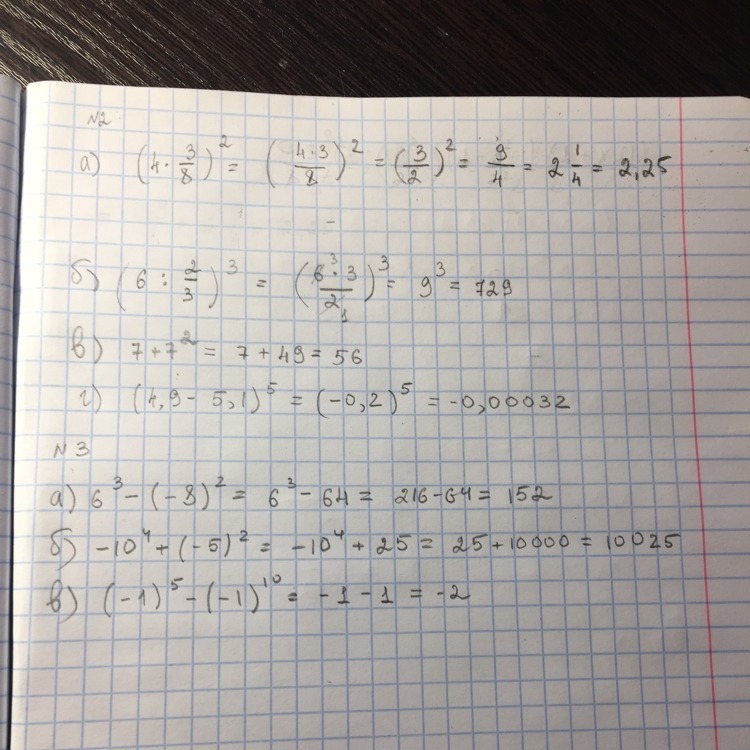 №2
а) (4 · 3/8)² = (4·3/8)² = (3/2)² = 9/4 = 2 1/4 = 2,25
б) (6 : 2/3)³ = (6³ · 3/2₁)³ = 9³ = 729
в) 7+7² = 7 + 49 = 56
г) (4,9 - 5,1)⁵ = (-0,2)⁵ = -0,00032
№3
а) 6³ - (-8)² = 6³ - 64 = 216-64 = 152
б) -10⁴ + (-5)² = -10⁴ + 25 = 25 + 10000 = 10025
в) (-1)⁵ - (-1)¹⁰ = -1 - 1 = -2